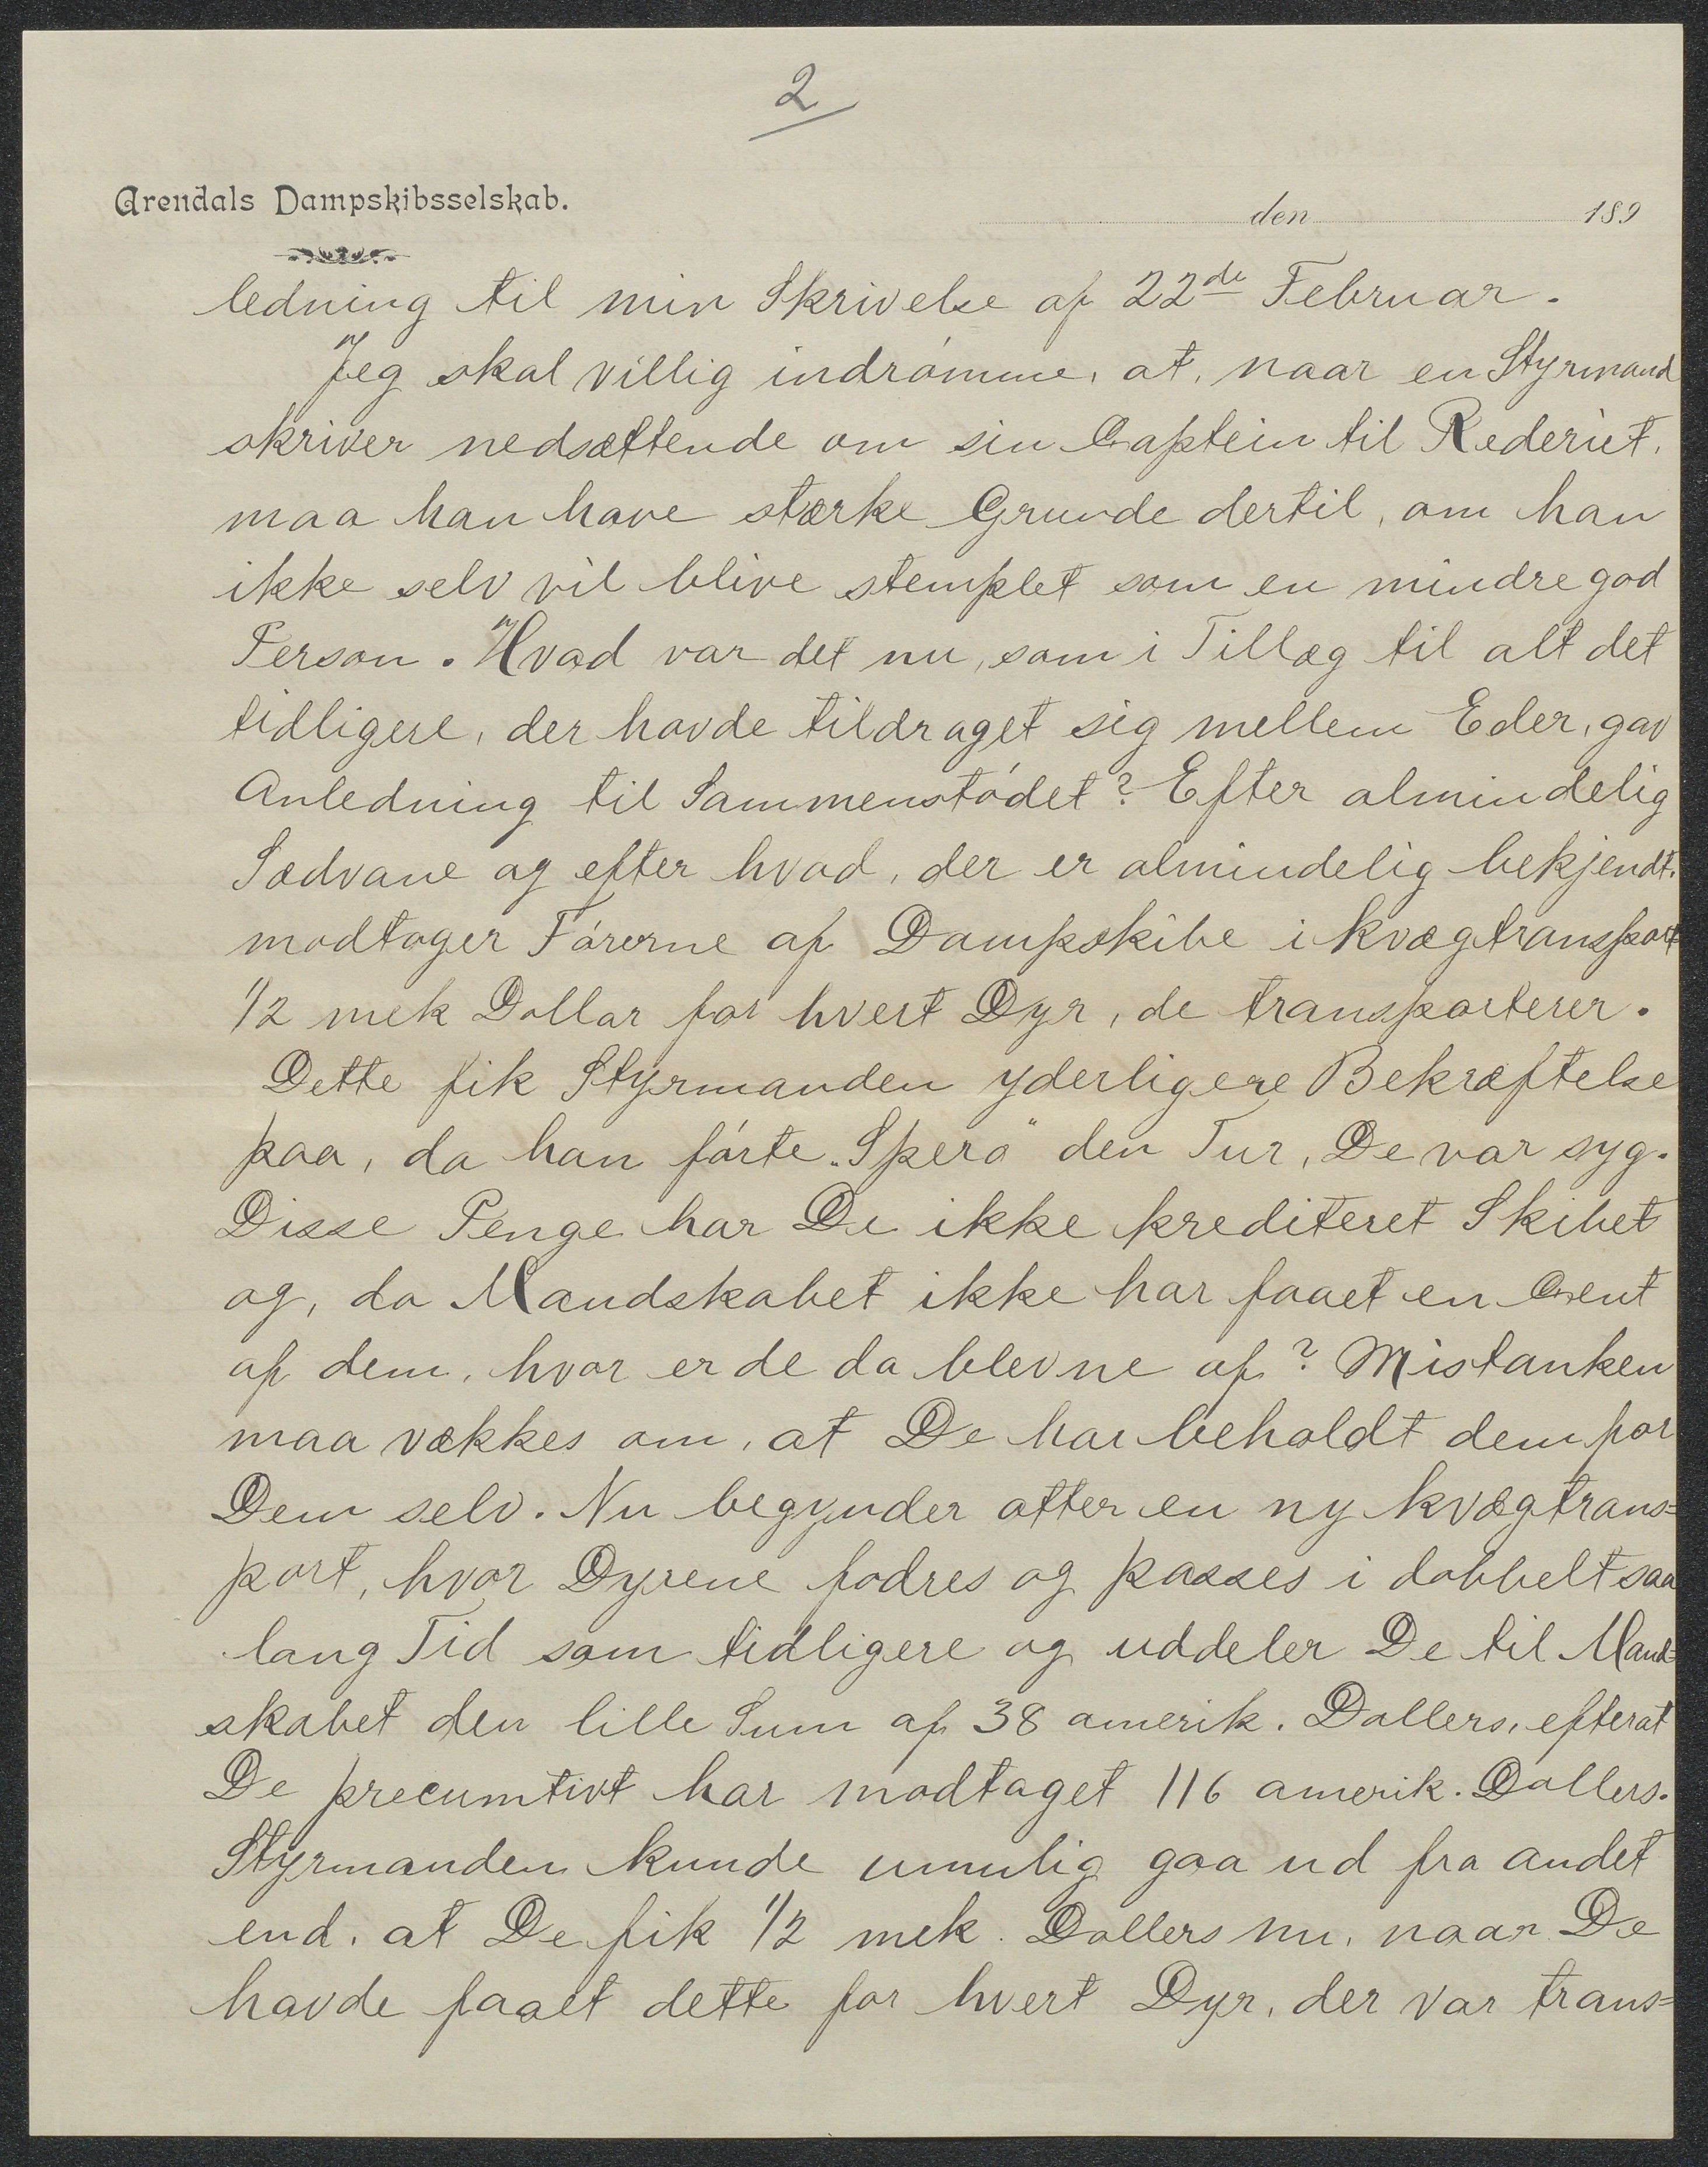 2
Arendals Dampskibsselskab.
den 189
ledning til min Skrivelse af 22de Februar.
Jeg skal villig indrömme, at, naar en Styrmand
skriver nedsættende om sin Captein til Rederiet,
maa han have stærke Grunde dertil, om han
ikke selv vil blive stemplet som en mindre god
Person. Hvad var det nu, som i Tillæg til alt det
tidligere, der havde tildraget sig mellem Eder, gav
Anledning til Sammenstödet? Efter almindelig
Sædvane og efter hvad, der er almindelig bekjendt,
modtager Förerne af Dampskibe i kvægtransport
1/2 mek Dollar for hvert Dyr, de transporterer.
Dette fik Styrmanden yderligere Bekræftelse
paa, da han förte "Spero" den Tur, De var syg.
Disse Penge har De ikke krediteret Skibet
og, da Mandskabet ikke har faaet en Cent
af dem, hvor er de da blevne af? Mistanken
maa vækkes om, at De har beholdt dem for
Dem selv. Nu begynder atter en ny kvægtrans=
port, hvor Dyrene fodres og passes i dobbelt saa
lang Tid som tidligere og uddeler De til Mand=
skabet den lille Sum af 38 amerik. Dollers, efterat
De precumtivt har modtaget 116 amerik. Dollers.
Styrmanden kunde umulig gaa ud fra andet
end, at De fik 1/2 mek. Dollers nu, naar De
havde faaet dette for hvert Dyr, der var trans=